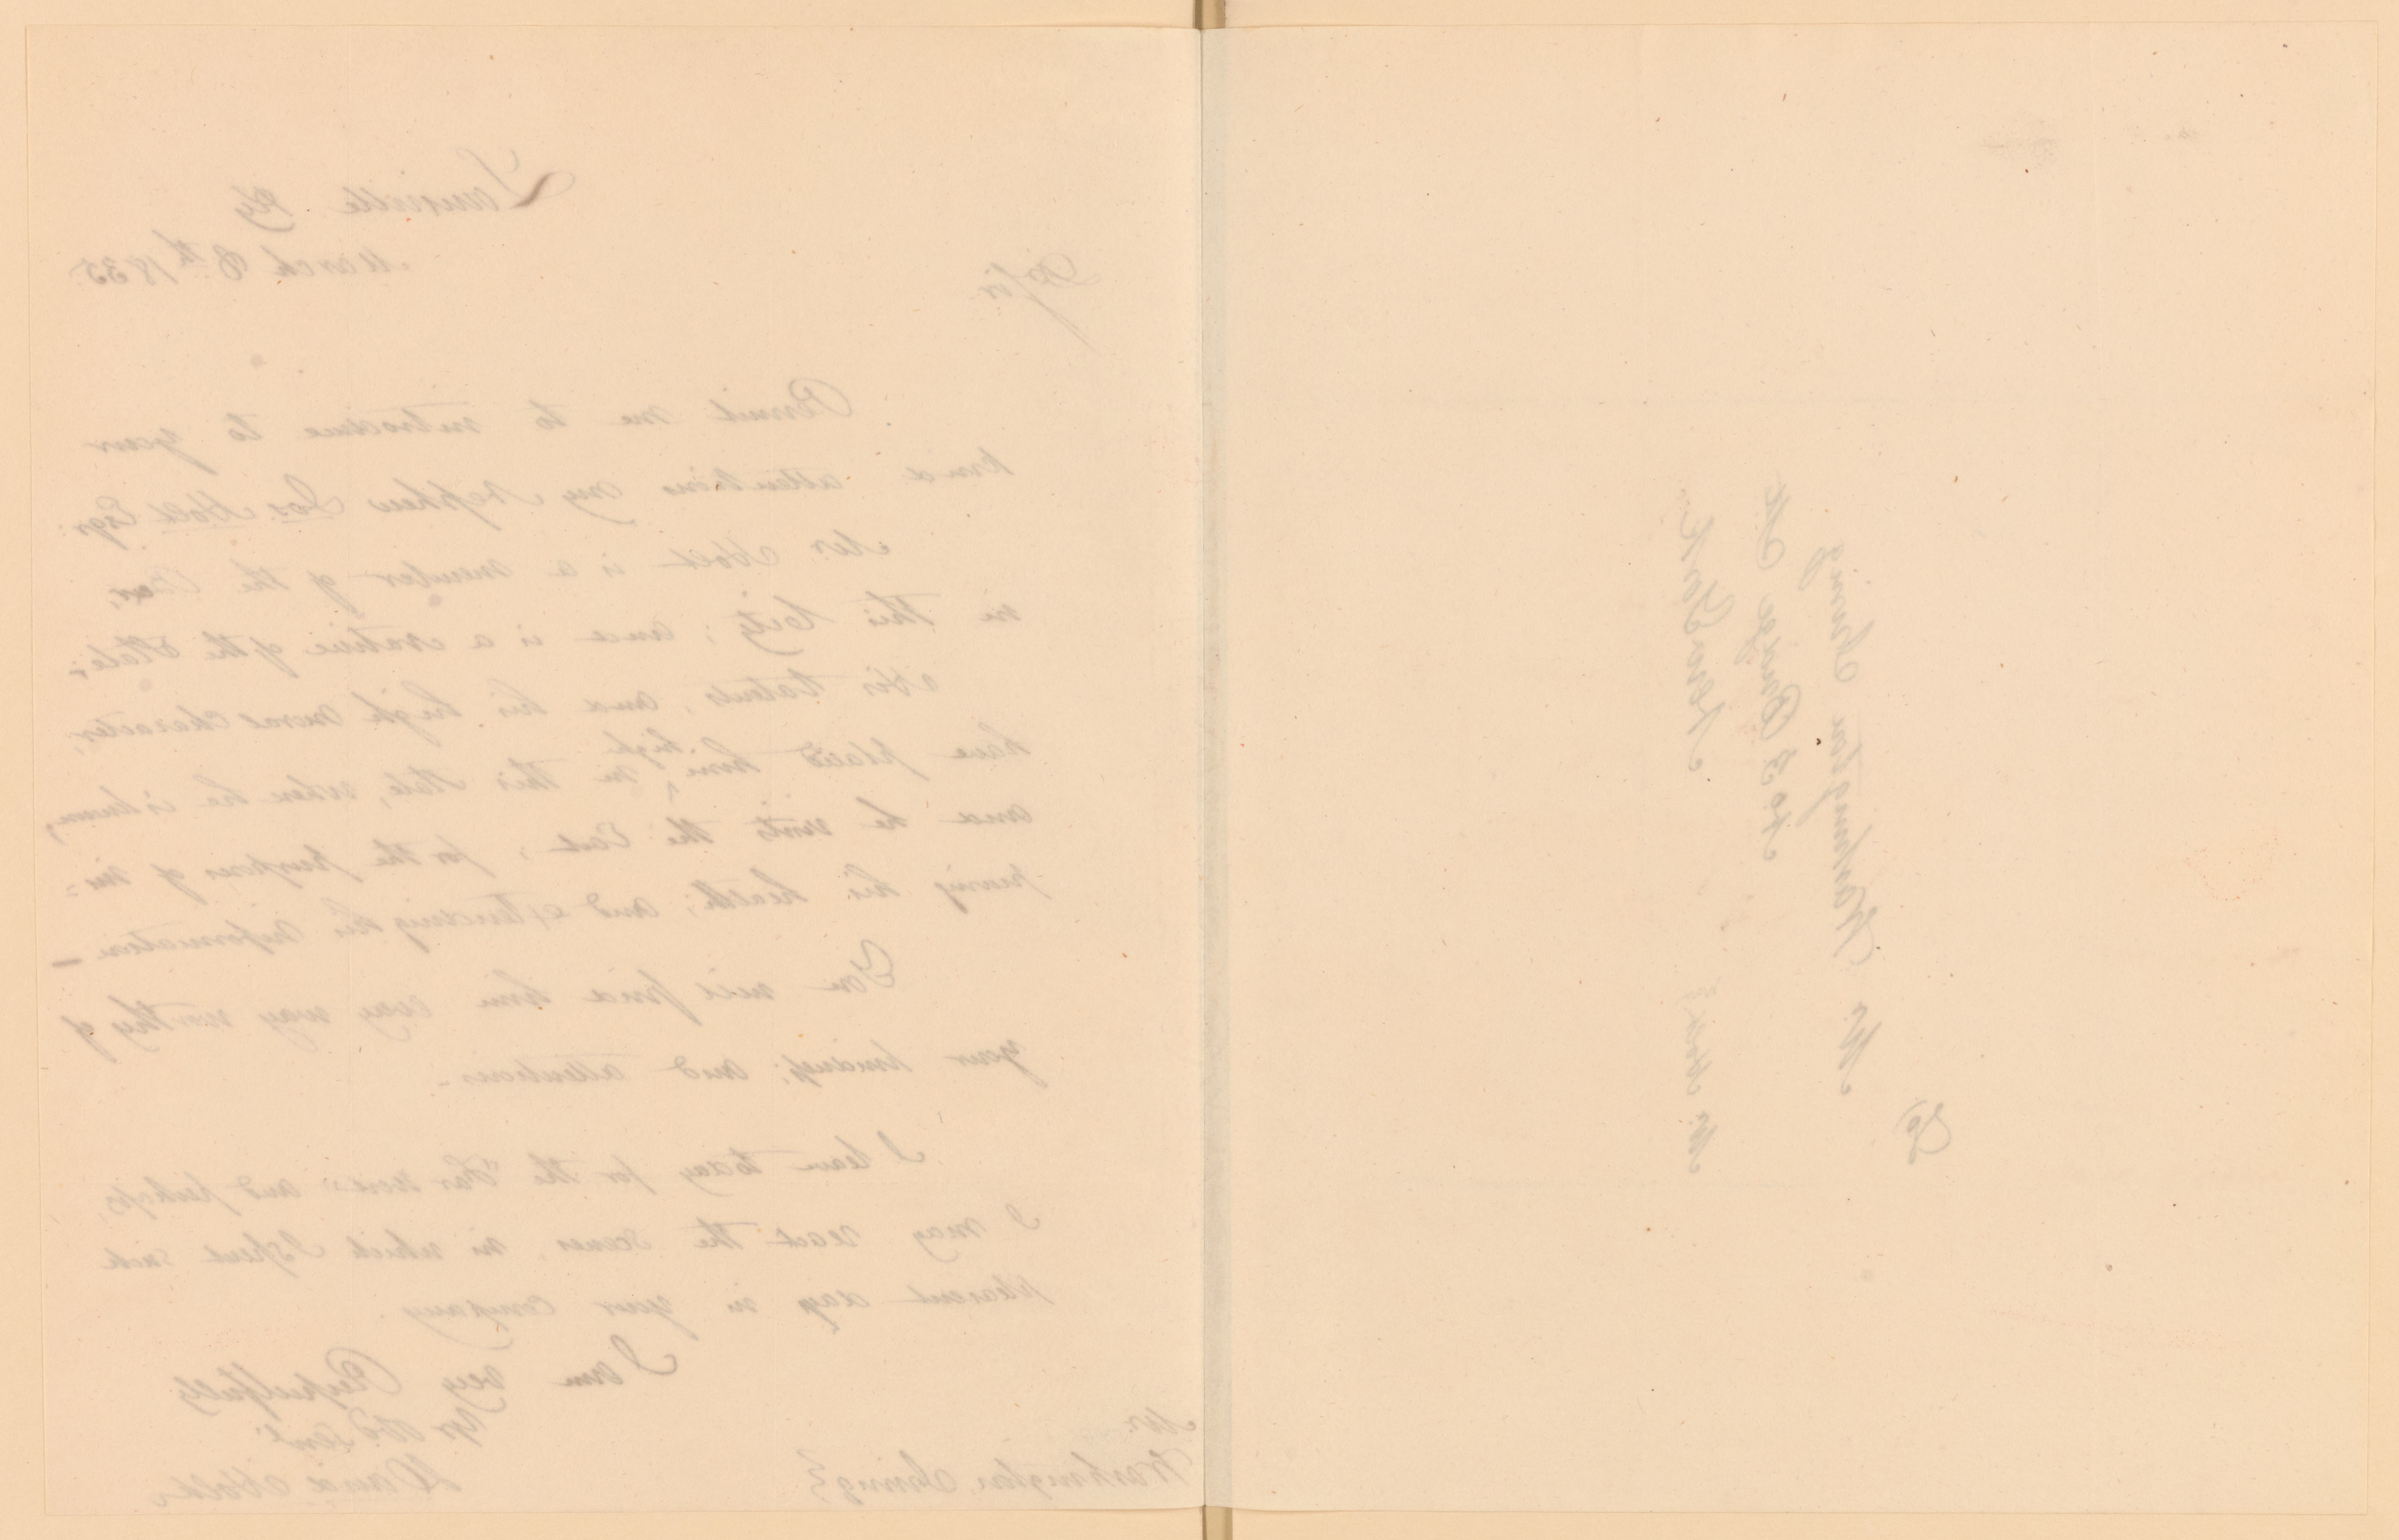 Louisville Ky
March 8th 1835
Dr Sir
Permit me to introduce to your
kind attentions my Nephew Jos. Holt Esqr
Mr Holt is a member of the Bar,
in this City; and is a native of the State;
His talents, and his high moral character,
have placed him high in this State, where he is known,
and he visits the East, for the purposes of im=
proving his health; and extending his information —
You will find him every way worthy of
your kindness; and attentions -
I leave today for the and perhaps,
I may reach the scenes, in which I spent such
pleasant days in your company.
I am very Respectfully
Yr Obd Servt
Holt
Mr.
Washington Irving
To
Mr Washington Irving
No 3 Bridge St
New York
Mr Holt